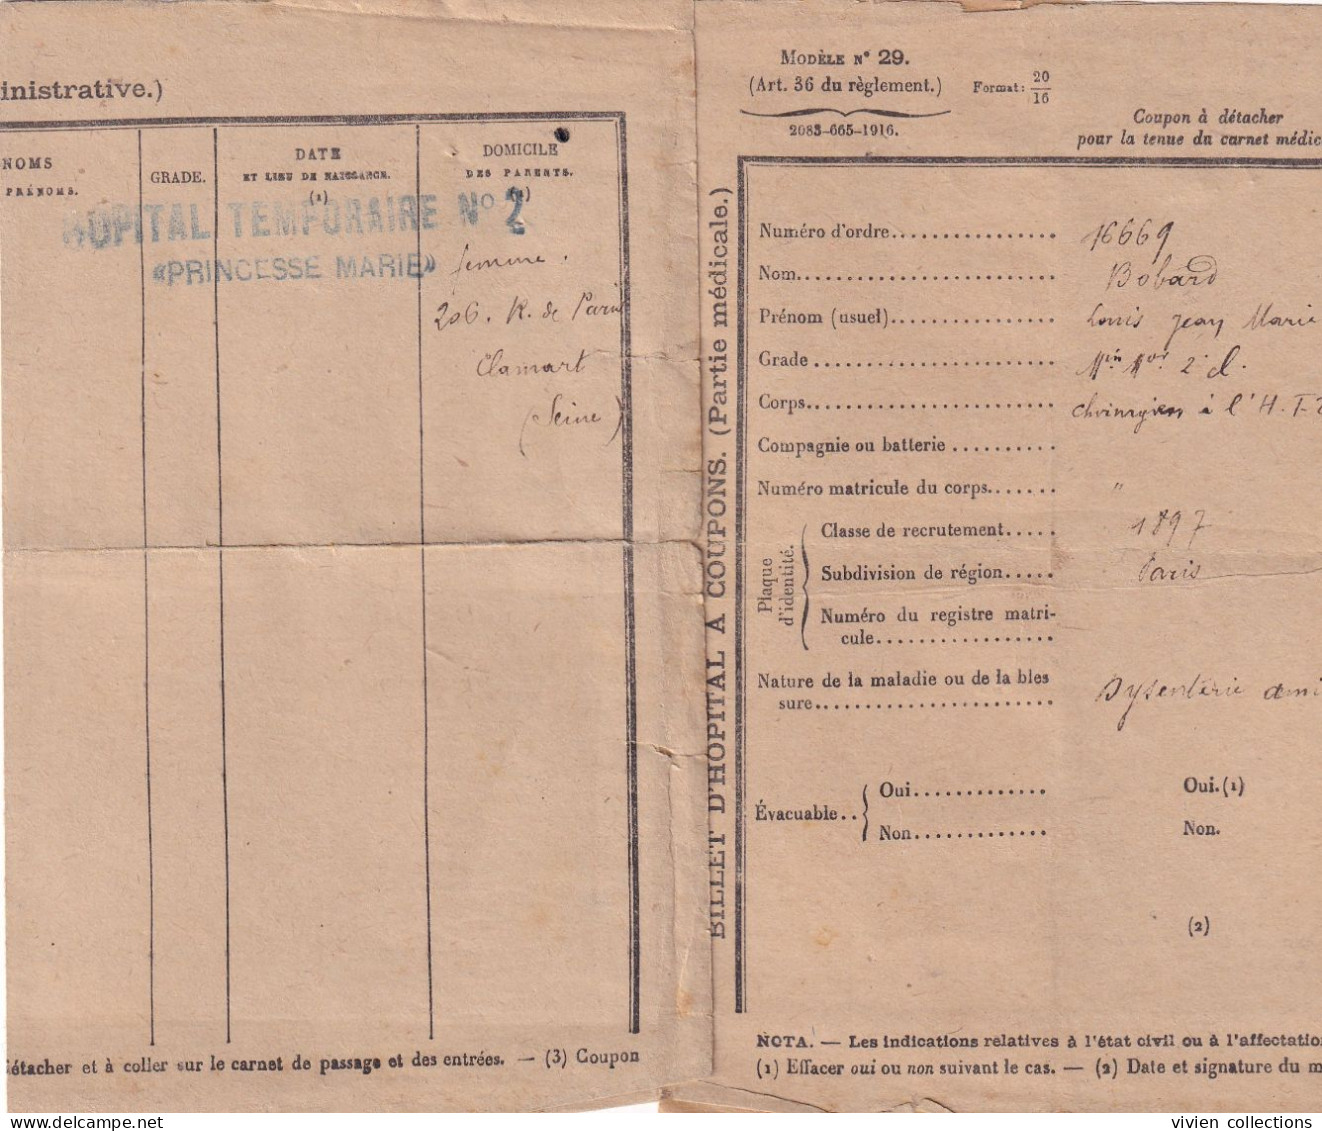 inistrative.)
NOMS
PRÉNOMS.
GRADE.
DATE
ET LIEU DE NAISSANCE.
(1)
DOMICILE
DES PARENTS.
HOPITAL TEMPORAIRE Nº 2
«PRINCESSE MARIE»
femme.
206. R. de Paris
Clamart
(Seine)
détacher et à coller sur le carnet de passage et des entrées. — (3) Coupon
BILLET D'HOPITAL A COUPONS. (Partie médicale.)
MODÈLE N° 29.
(Art. 36 du règlement.)
2083-665-1916.
Format: 20/16
Coupon à détacher
pour la tenue du carnet médic
Numéro d'ordre 16669
Nom Bobard
Prénom (usuel) Louis Jean Marie
Grade Min Mor 2e cl.
Corps chirurgien à l'H.T. 2
Compagnie ou batterie
Numéro matricule du corps "
Plaque d'identité.
Classe de recrutement 1897
Subdivision de région Paris
Numéro du registre matri-
cule
Nature de la maladie ou de la bles
sure Dysenterie ami
Évacuable
Oui Oui.(1)
Non Non.
(2)
NOTA. — Les indications relatives à l'état civil ou à l'affectation
(1) Effacer oui ou non suivant le cas. — (2) Date et signature du m
vivien collections